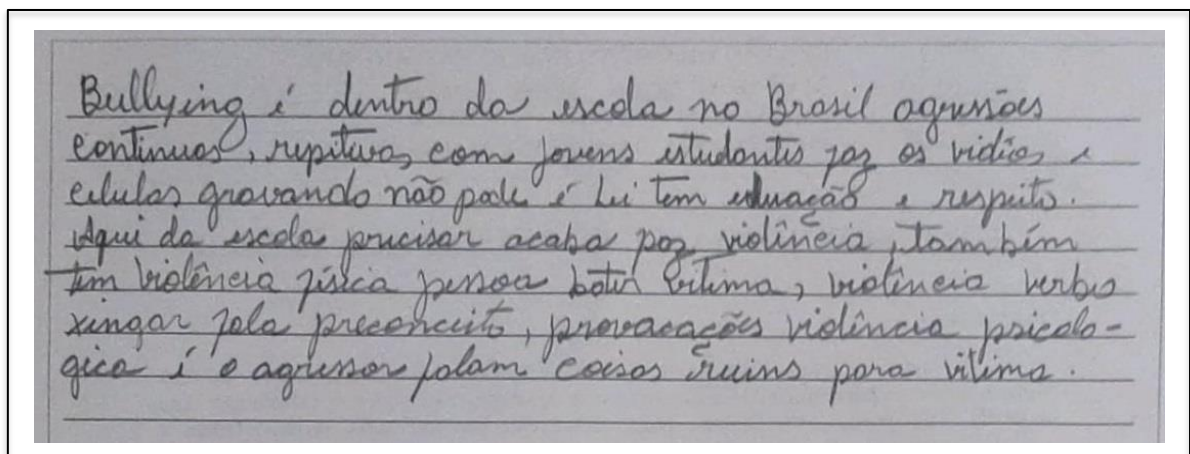 Bullying é dentro da escola no Brasil agressões
continuas, repitivas, com jovens estudantis faz os vidios, e
celular gravando não pode é Lei tem educação e respeito.
Aqui da escola precisar acaba paz violência, também
tem violência física pessoa bater vítima, violência verbo
xingar fala preconceito, provacações violência psicolo-
gica é o agressor falam coisas ruins para vitima.